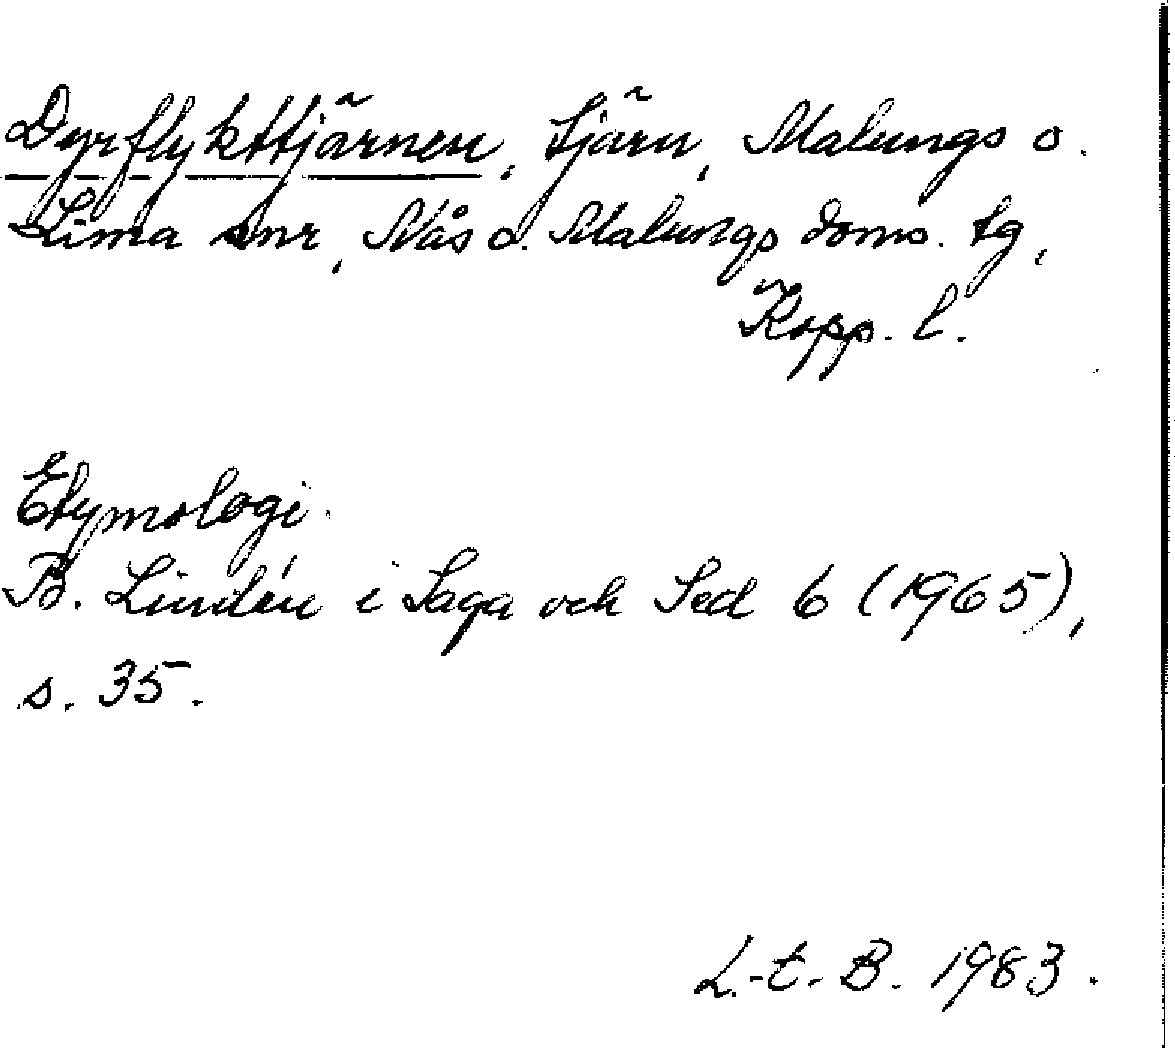 Dyrflykttjärnen, tjärn, Malungs o.
Lima snr, Nås o. Malungs doms. tg,
Kopp. l.
Etymologi.
B. Lindén i Saga och Sed 6 (1965),
s. 35.
L.-E. B. 1983.